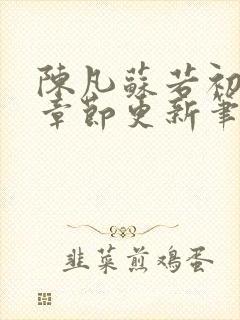 陳凡蘇若初
章節更新筆
韭菜煎鸡蛋